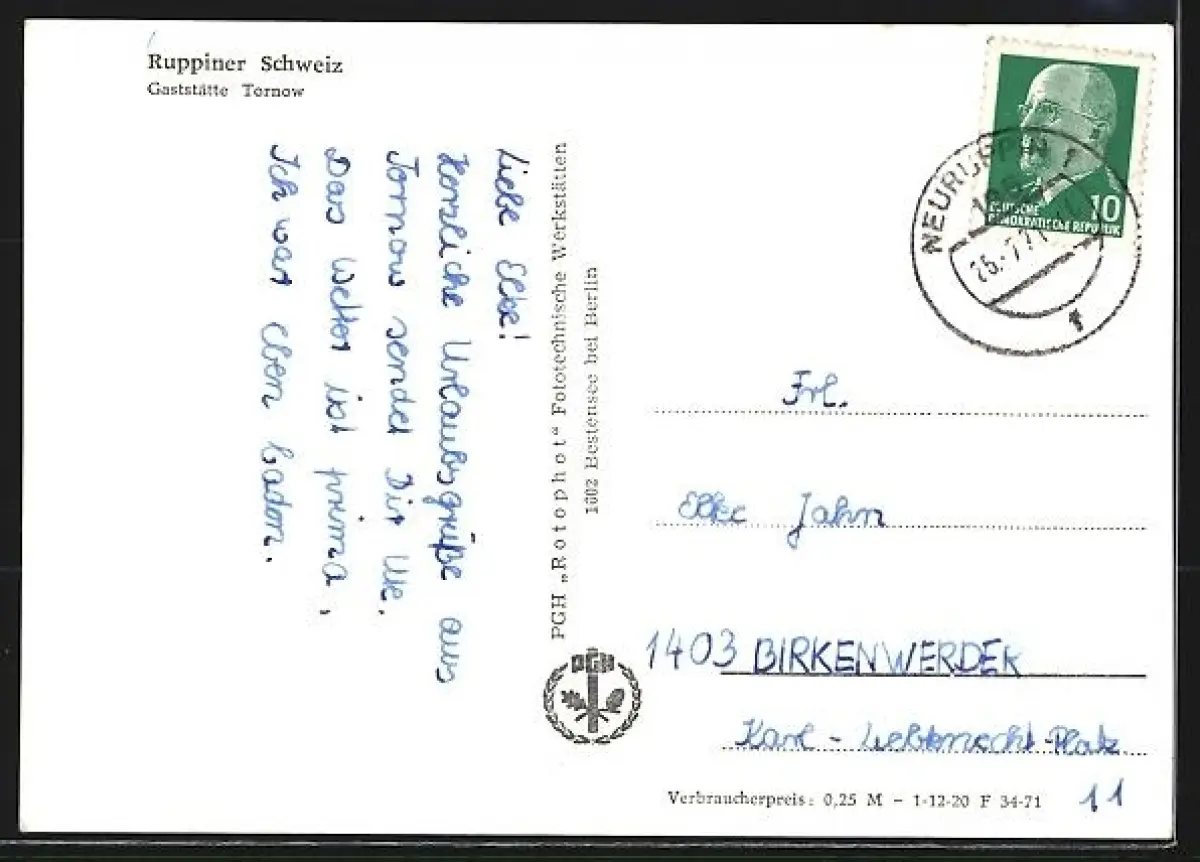 Ruppiner Schweiz
Gaststätte Tornow
Liebe Elke!
Herzliche Urlaubsgrüße aus
Tornow sendet Dir Ute.
Das Wetter ist prima,
Ich war eben baden.
PGH „Rotophot“ Fototechnische Werkstätten
1602 Bestensee bei Berlin
PGH
10
DEUTSCHE
DEMOKRATISCHE REPUBLIK
NEURUPPIN 1
25.-7.71
f
Frl.
Elke Jahn
1403 BIRKENWERDER
Karl-Liebknecht-Platz
11
Verbraucherpreis: 0,25 M – 1-12-20 F 34-71